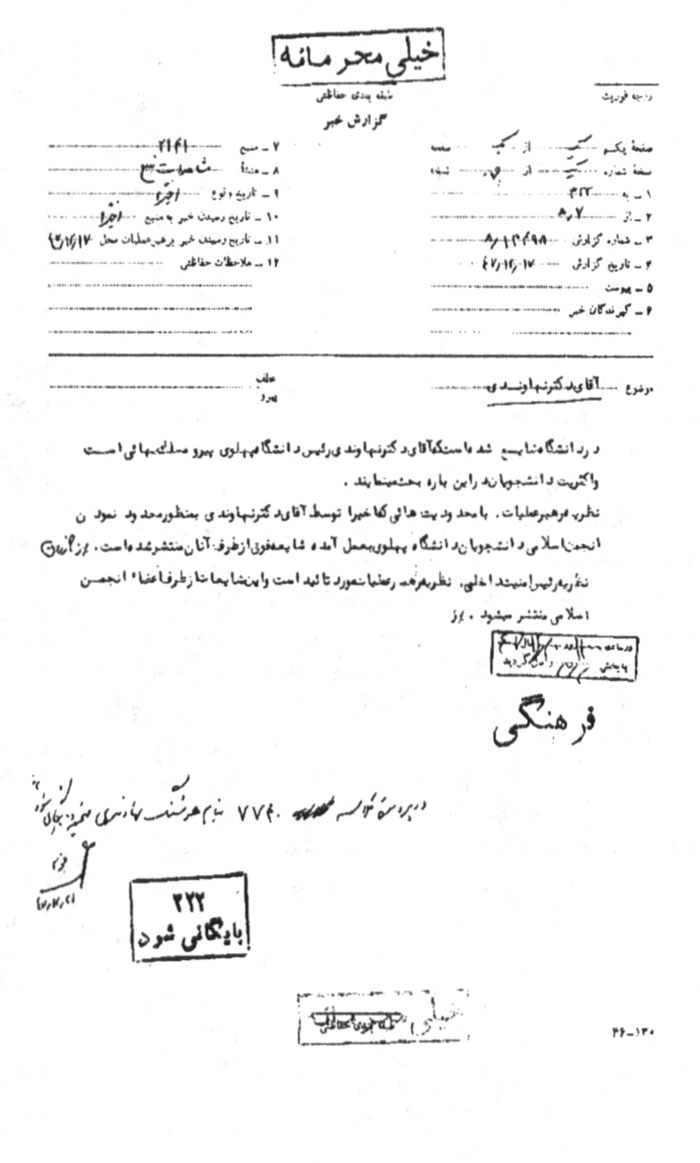 خیلی محرمانه
طبقه بندی حفاظتی
درجه فوریت
گزارش خبر
صفحهٔ یکم یک از یک صفحه
نسخهٔ شماره یک از نسخه
۱ - به ۳۲۲
۲ - از ۸ه‍ ۷
۳ - شماره گزارش
۴ - تاریخ گزارش ۴۷/۱۲/۱۷
۵ - پیوست
۶ - گیرندگان خبر
۷ - منبع ۲۱۴۱
۸ - منشأ
۹ - تاریخ وقوع اخیراً
۱۰ - تاریخ رسیدن خبر به منبع اخیراً
۱۱ - تاریخ رسیدن خبر برهبر عملیات محل ۴۷/۱۲/۱۷
۱۲ - ملاحظات حفاظتی
موضوع آقای دکتر نهاوندی
عطف
پیرو
در دانشگاه شایع شده است که آقای دکتر نهاوندی رئیس دانشگاه پهلوی پیرو مسلک بهائی است
و اکثریت دانشجویان در این باره بحث مینمایند .
نظریه رهبر عملیات . با محدودیت هائی که اخیرا توسط آقای دکتر نهاوندی بمنظور محدود نمودن
انجمن اسلامی دانشجویان دانشگاه پهلوی بعمل آمده شایعه فوق از طرف آنان منتشر شده است .
نظریه رئیس امنیت داخلی . نظریه رهبر عملیات مورد تائید است و این شایعات از طرف اعضاء انجمن
اسلامی منتشر میشود .
فرهنگی
در پرونده کلاسه ۷۷۴۰ بنام هوشنگ نهاوندی
۳۲۲
بایگانی شود
خیلی
طبقه بندی حفاظتی
۴۶-۱۳۰